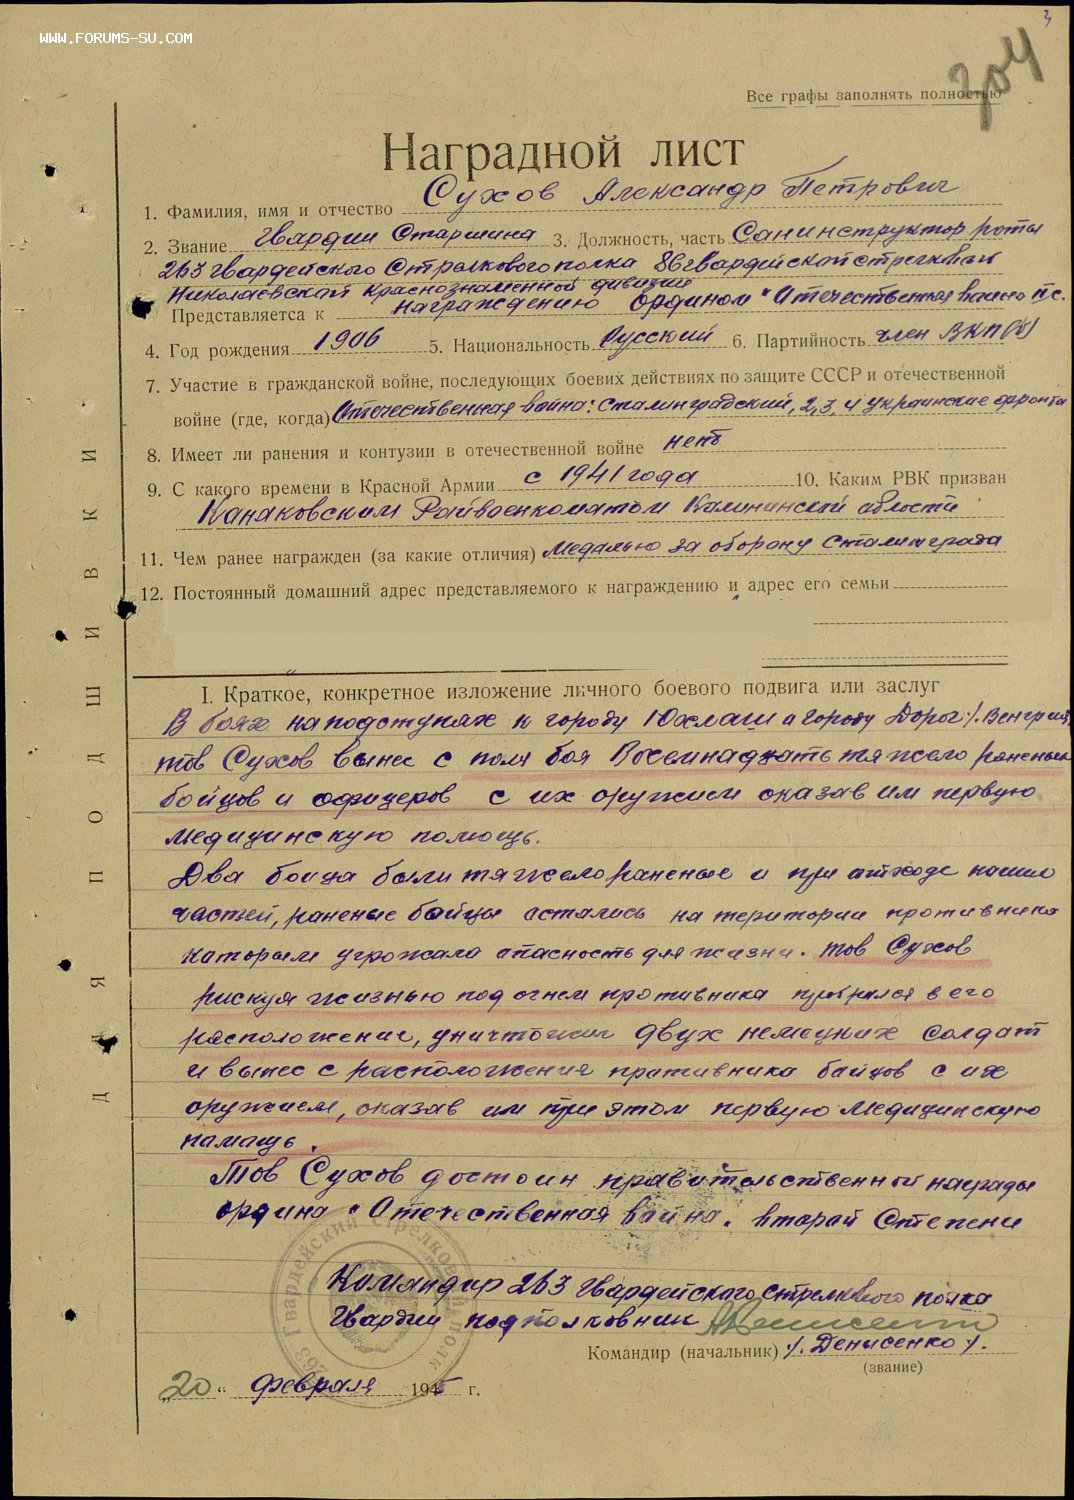 WWW.FORUMS-SU.COM
3
204
Все графы заполнять полностью
Наградной лист
1. Фамилия, имя и отчество Сухов Александр Петрович
2. Звание Гвардии Старшина 3. Должность, часть Санинструктор роты
263 гвардейского Стрелкового полка 86 гвардейской стрелковой
Николаевской краснознаменной дивизии
Представляется к награждению орденом "Отечественная война II с.
4. Год рождения 1906 5. Национальность Русский 6. Партийность член ВКП(б)
7. Участие в гражданской войне, последующих боевих действиях по защите СССР и отечественной
войне (где, когда) Отечественная война: Сталинградский, 2, 3, 4 украинские фронта
8. Имеет ли ранения и контузии в отечественной войне нет
9. С какого времени в Красной Армии с 1941 года 10. Каким РВК призван
Канаковским Райвоенкоматом Калининской области
11. Чем ранее награжден (за какие отличия) Медалью за оборону Сталинграда
12. Постоянный домашний адрес представляемого к награждению и адрес его семьи
I. Краткое, конкретное изложение личного боевого подвига или заслуг
В боях на подступах к городу и городу Дорог /. Венгрия,
тов Сухов вынес с поля боя Восемнадцать тяжело раненых
бойцов и офицеров с их оружием оказав им первую
медицинскую помощь.
Два бойца были тяжело раненые и при отходе наших
частей, раненые бойцы остались на територии противника
каторым угрожала опасность для жизни. тов Сухов
рискуя жизнью под огнем противника пробрался в его
расположение, уничтожил двух немецких солдат
и вынес с расположения пративника байцов с их
оружием, оказав им при этом первую медицинскую
памащь.
Тов Сухов достоин правительственной награды
ордина "Отечественная вайна" втарай Степени
Командир 263 гвардейского стрелкового полка
Гвардии подполковник
Командир (начальник) /. Денисенко /.
(звание)
„20“ февраля 1945 г.
263 Гвардейский стрелковый полк
ДЛЯ ПОДШИВКИ